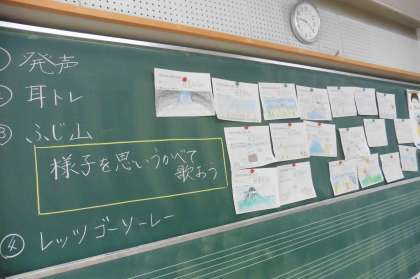 ① 発声
② 耳トレ
③ ふじ山
様子を思いうかべて
歌おう
④ レッツゴーソーレー